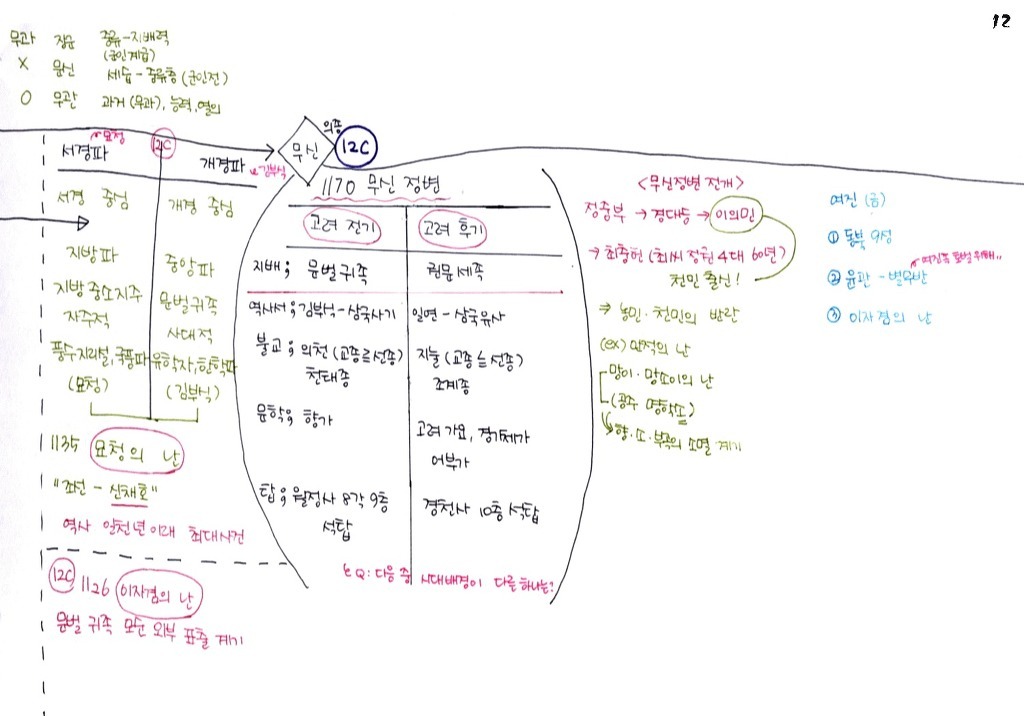 12
무과 장군 중류-지배력
(군인계급)
X 문신 세습-중류층(군인전)
O 무관 과거(무과), 능력, 열의
묘청
서경파
12C
개경파
김부식
무신
의종
12C
서경 중심
개경 중심
지방파
중앙파
지방 중소지주
문벌귀족
자주적
사대적
풍수지리설, 국풍파
유학자, 한학파
(묘청)
(김부식)
1135 묘청의 난
"조선-신채호"
역사 일천년이래 최대사건
12C 1126 이자겸의 난
문벌 귀족 모순 외부 표출 계기
1170 무신 정변
고려 전기
고려 후기
지배; 문벌귀족
권문세족
역사서; 김부식-삼국사기
일연-삼국유사
불교; 의천(교종≧선종)
천태종
지눌(교종≦선종)
조계종
문학; 향가
고려 가요, 경기체가
어부가
탑; 월정사 8각 9층
석탑
경천사 10층 석탑
Q: 다음 중 시대배경이 다른 하나는?
<무신정변 전개>
정중부 → 경대승 → 이의민
→ 최충헌(최씨 정권 4대 60년)
천민 출신!
→ 농민·천민의 반란
(ex) 만적의 난
망이·망소이의 난
(공주 명학소)
향·소·부곡의 소멸 계기
여진(금)
① 동북 9성
여진족 토벌 위해..
② 윤관-별무반
③ 이자겸의 난